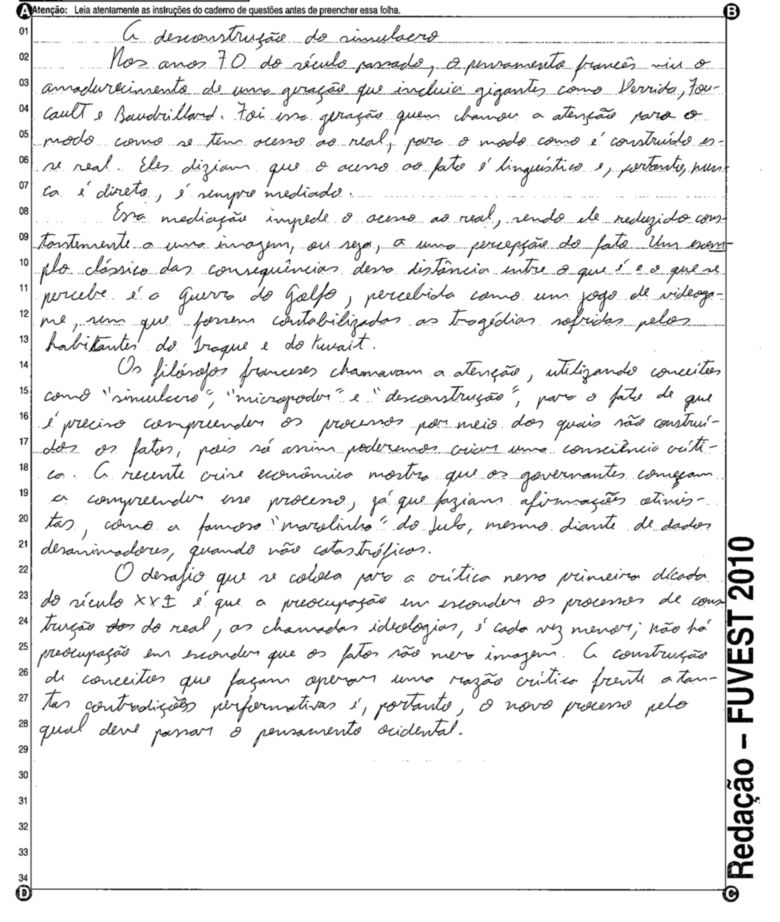 A Atenção: Leia atentamente as instruções do caderno de questões antes de preencher essa folha. B
01 A desconstrução do simulacro
02 Nos anos 70 do século passado, o pensamento francês viu o
03 amadurecimento de uma geração que incluia gigantes como Derrida, Fou-
04 cault e Baudrillard. Foi essa geração quem chamou a atenção para o
05 modo como se tem acesso ao real, para o modo como é construído es-
06 se real. Eles diziam que o acesso ao fato é linguístico e, portanto, nun-
07 ca é direto, é sempre mediado.
08 Essa mediação impede o acesso ao real, sendo ele reduzido cons-
09 tantemente a uma imagem, ou seja, a uma percepção do fato. Um exem-
10 plo clássico das consequências dessa distância entre o que é e o que se
11 percebe é a Guerra do Golfo, percebida como um jogo de videoga-
12 me, sem que fossem contabilizadas as tragédias sofridas pelos
13 habitantes do Iraque e do Kuwait.
14 Os filósofos franceses chamavam a atenção, utilizando conceitos
15 como "simulacro", "micropoder" e "desconstrução", para o fato de que
16 é preciso compreender os processos por meio dos quais são construí-
17 dos os fatos, pois só assim poderemos criar uma consciência críti-
18 ca. A recente crise econômica mostra que os governantes começam
19 a compreender esse processo, já que faziam afirmações otimis-
20 tas, como a famosa "marolinha" do Lula, mesmo diante de dados
21 desanimadores, quando não catastróficos.
22 O desafio que se coloca para a crítica nessa primeira década
23 do século XXI é que a preocupação em esconder os processos de cons-
24 trução dos do real, as chamadas ideologias, é cada vez menor; não há
25 preocupação em esconder que os fatos são mera imagem. A construção
26 de conceitos que façam operar uma razão crítica frente a tan-
27 tas contradições performativas é, portanto, o novo processo pelo
28 qual deve passar o pensamento ocidental.
29
30
31
32
33
34
D C
Redação – FUVEST 2010